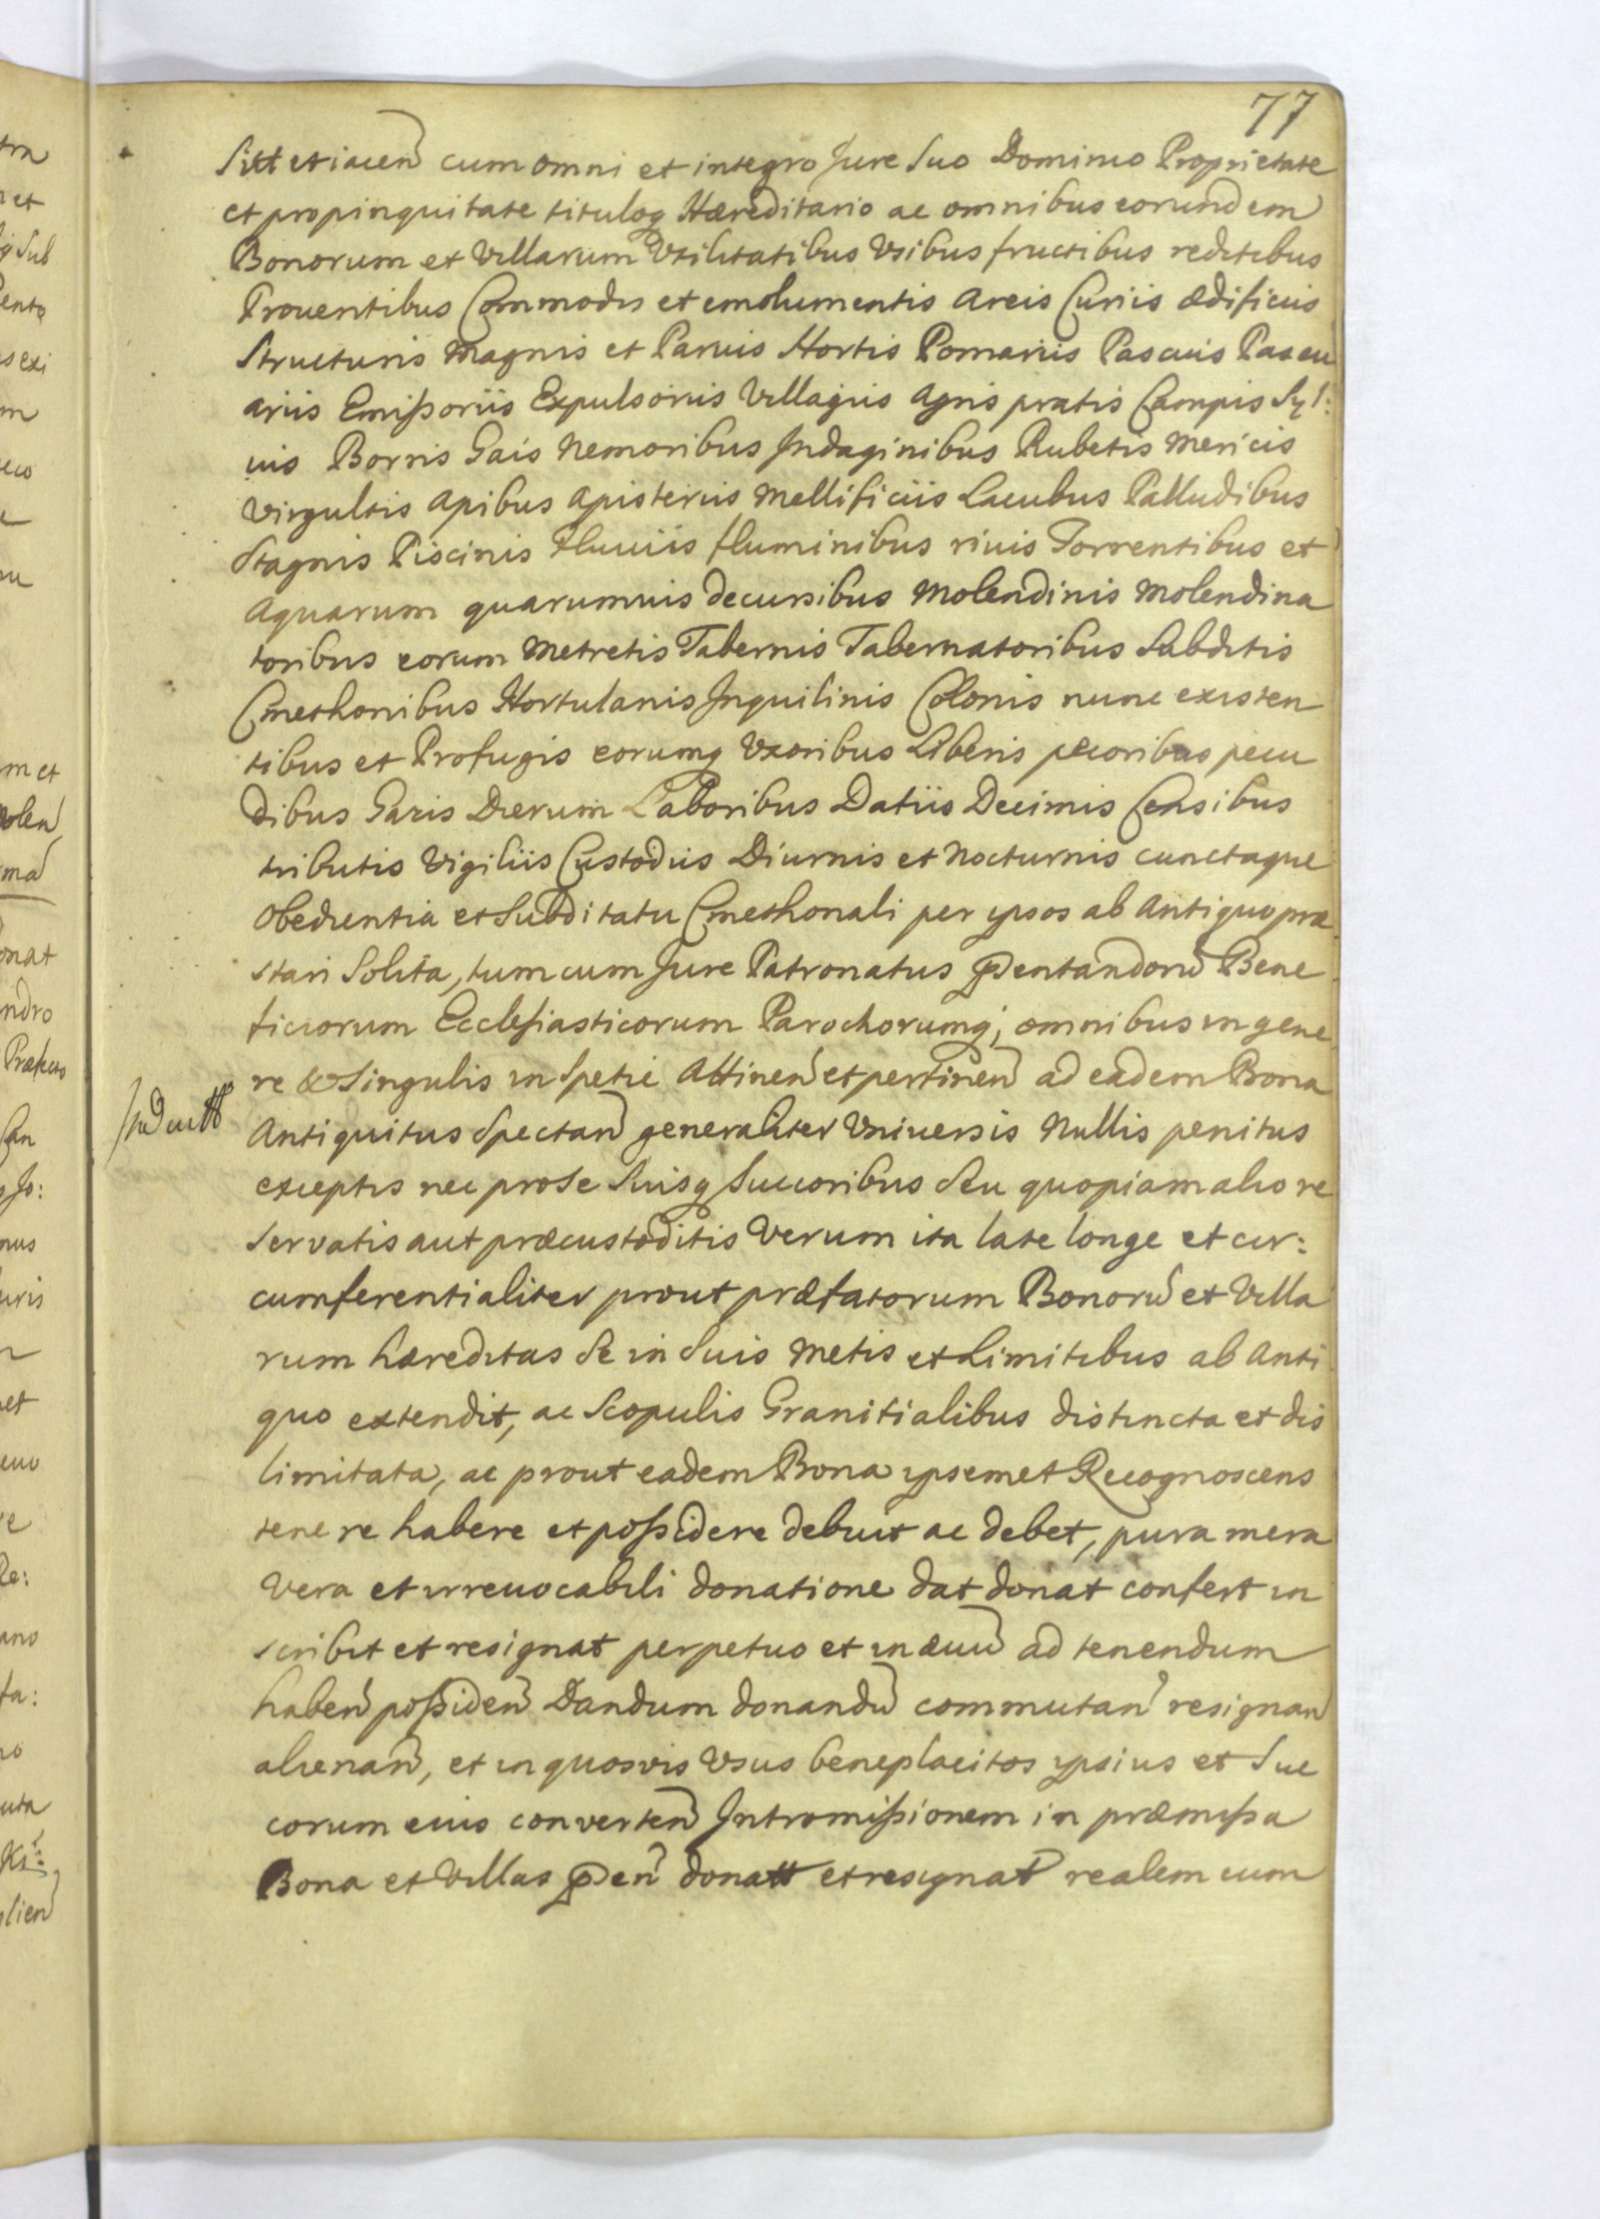 77
Sitt et iacen cum omni et integro Jure Suo Dominio Proprietate
et propinquitate tituloq Hæreditario ac omnibus eorundem
Bonorum et Villarum Vtilitatibus Vsibus fructibus reditibus
Prouentibus Commodis et emolumentis Areis Curiis ædificiis
Structuris Magnis et Paruis Hortis Pomariis Pascuis Pascu
ariis Emißoriis Expulsoriis Villagiis Agris pratis Campis Syl:
uis Borris Gais Nemoribus Indaginibus Rubetis Mericis
Virgultis Apibus Apisteriis Mellificiis Lacubus Palludibus
Stagnis Piscinis Fluuiis fluminibus riuis Torrentibus et
Aquarum quarumuis decursibus Molendinis Molendina
toribus eorum Metretis Tabernis Tabernatoribus Subditis
Cmethonibus Hortulanis Inquilinis Colonis nunc existen
tibus et Profugis eorumq Vxoribus Liberis pecoribus pecu
dibus Gazis Dierum Laboribus Datiis Decimis Censibus
tributis Vigiliis Custodiis Diurnis et Nocturnis cunctaque
Obedientia et Subditatu Cmethonali per ipsos ab Antiquo præ
stari Solita, tum cum Jure Patronatus pentandorū Bene
ficiorum Ecclesiasticorum Parochorumq, omnibus in gene
re & Singulis in Spetie Attinen et pertinen ad eadem Bona
Antiquitus Spectan generaliter Vniuersis Nullis penitus
exceptis nec pro Se Suisq Succoribus Seu quopiam alio re
servatis aut præcustoditis Verum ita late longe et cir:
cumferentialiter prout præfatorum Bonorū et Villa
rum hæreditas Se in Suis Metis et Limitibus ab Anti
quo extendit, ac Scopulis Granitialibus distincta et dis
limitata, ac prout eadem Bona ipsemet Recognoscens
tenere habere et poßidere debuit ac debet, pura mera
Vera et irreuocabili donatione dat donat confert in
scribit et resignat perpetuo et in æuū ad tenendum
haben poßiden Dandum donandū commutan resignan
alienan, et in quosvis Vsus beneplacitos ipsius et Suc
corum eius converten Intromißionem in præmißa
Bona et Villas pen donatt et resignat realem cum